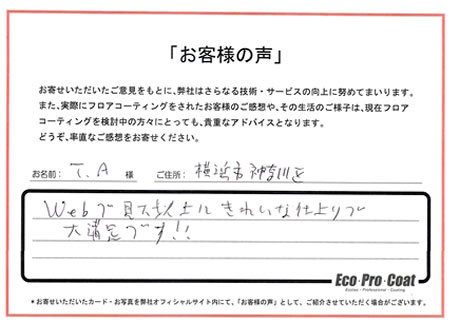 「お客様の声」
お寄せいただいたご意見をもとに、弊社はさらなる技術・サービスの向上に努めてまいります。
また、実際にフロアコーティングをされたお客様のご感想や、その生活のご様子は、現在フロア
コーティングを検討中の方々にとっても、貴重なアドバイスとなります。
どうぞ、率直なご感想をお寄せください。
お名前： T.A 様 ご住所： 横浜市神奈川区
Webで見た以上にきれいな仕上りで
大満足です!!
Eco・Pro・Coat
Ecolan・Professional・Coating
＊お寄せいただいたカード・お写真を弊社オフィシャルサイト内にて、「お客様の声」として、ご紹介させていただく場合がございます。